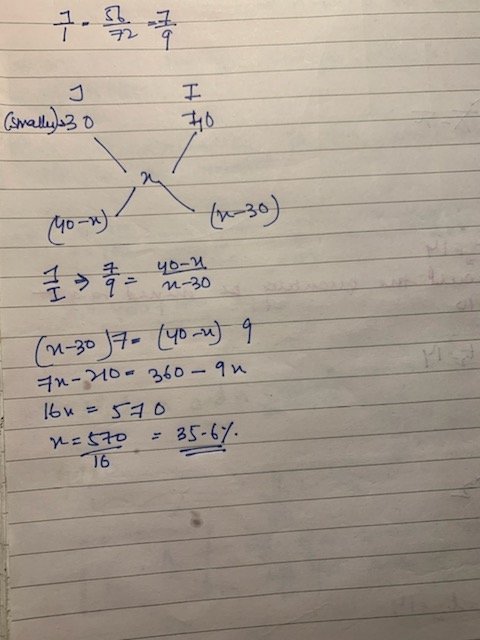 J/I = 56/72 = 7/9
J I
(Smally)→30 40
x
(40-x) (x-30)
J/I ⇒ 7/9 = 40-x/x-30
(x-30)7 = (40-x) 9
7x-210 = 360-9x
16x = 570
x = 570/16 = 35.6%